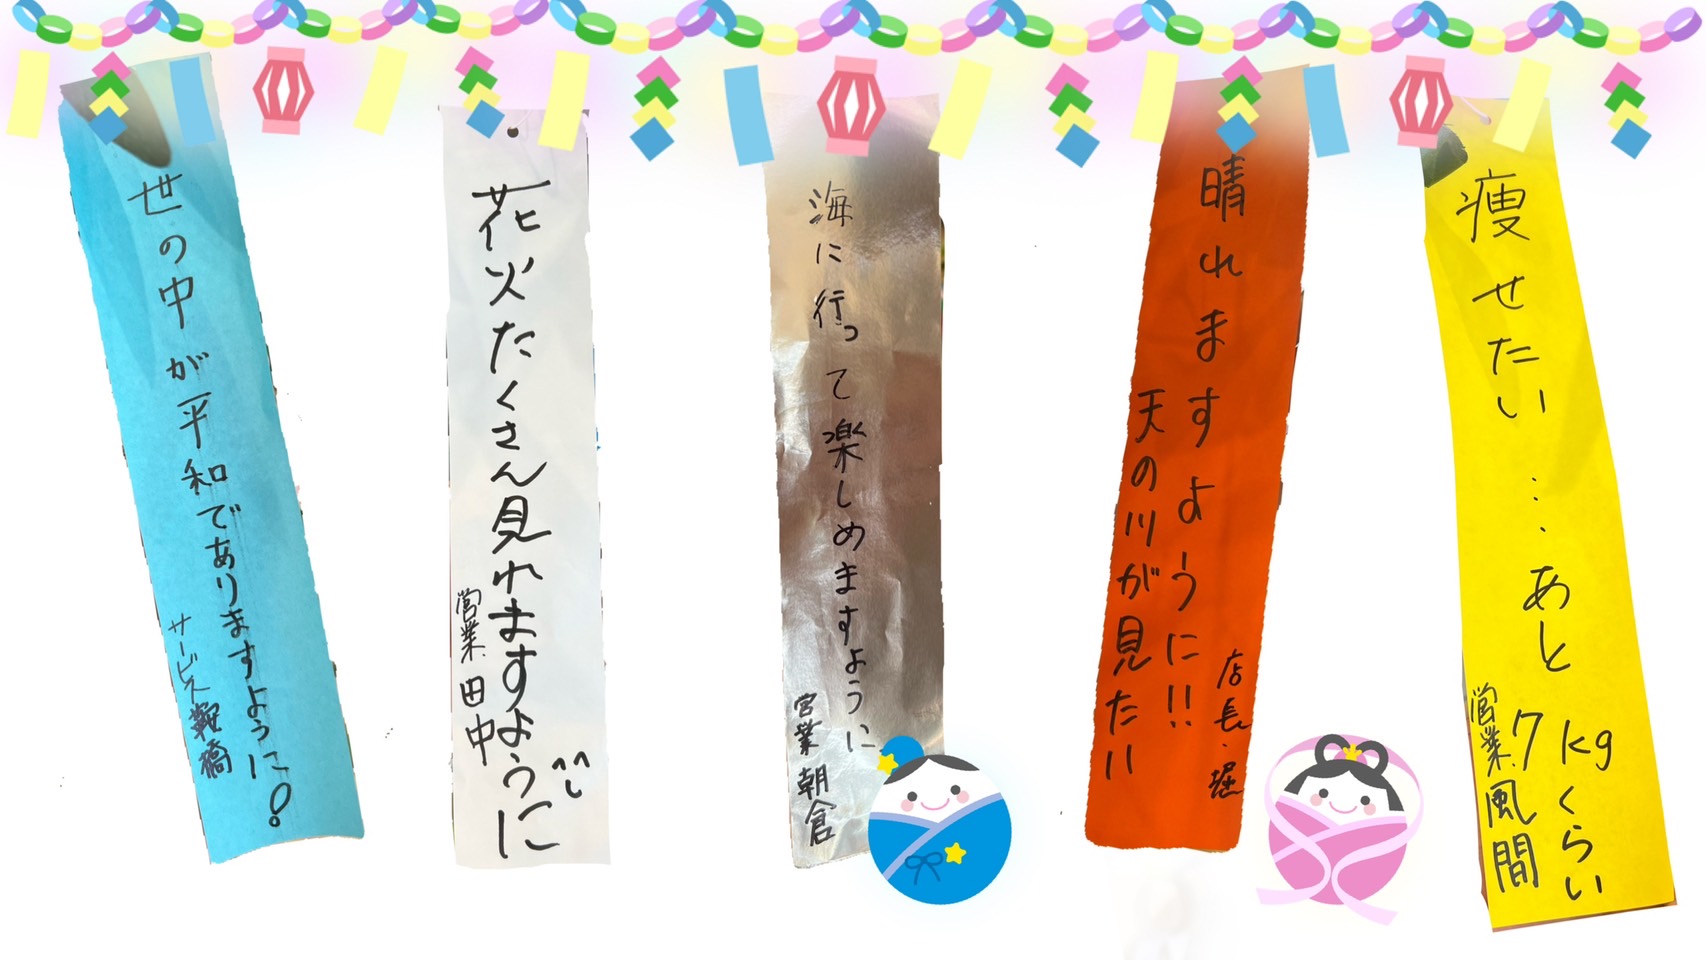 世の中が平和でありますように!
サービス 鞍橋
花火たくさん見れますように
営業 田中
海に行って楽しめますように
営業 朝倉
晴れますように!!
天の川が見たい
店長・堀
痩せたい…あと
7kgくらい
営業 風間